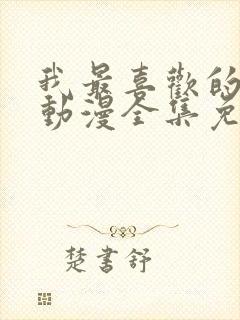 我最喜歡的
動漫全集免
楚書舒